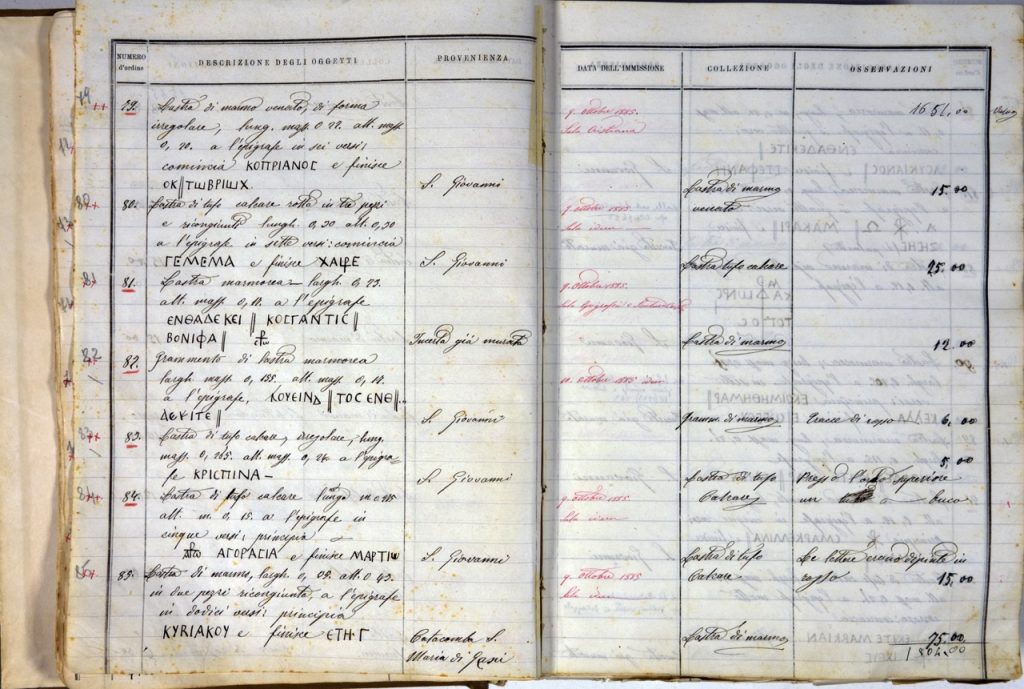 NUMERO d'ordine
DESCRIZIONE DEGLI OGGETTI
PROVENIENZA
79. Lastra di marmo venato, di forma
irregolare, lung. mass. 0,22. alt. mass.
0,20. a l'epigrafe in sei versi:
comincia ΚΟΠΡΙΑΝΟC e finisce
ΟΚ‖ΤωΒΡΙωΧ.
S. Giovanni
80. Lastra di tufo calcare rotta in tre pezzi
e ricongiunti lungh. 0,30 alt. 0,30
a l'epigrafe in sette versi: comincia
ΓΕΜΕΜΑ e finisce ΧΑΙΡΕ
S. Giovanni
81. Lastra marmorea largh. 0,23.
alt. mass. 0,11. a l'epigrafe
ΕΝΘΑΔΕΚΕΙ‖ ΚΟCΓΑΝΤΙC‖
ΒΟΝΙΦΑ‖
Incerta già murata
82. Frammento di lastra marmorea
largh. mass. 0,155. alt. mass. 0,14.
a l'epigrafe, ΚΟΥΕΙΝΔ‖ΤΟC ΕΝΘ‖...
ΔΕΚΙΤΕ‖
S. Giovanni
83. Lastra di tufo calcare, irregolare, lung.
mass. 0,265. alt. mass. 0,24 a l'epigra-
fe ΚΡΙCΠΙΝΑ –
S. Giovanni
84. Lastra di tufo calcare
alt. m. 0,15. a l'epigrafe in
cinque versi: principia
ΑΓΟΡΑCΙΑ e finisce ΜΑΡΤΙω
S. Giovanni
85. Lastra di marmo, largh. 0,39. alt. 0,43.
in due pezzi ricongiunta, a l'epigrafe
in dodici versi: principia
ΚΥRΙΑΚΟΥ e finisce ΕΤΗ·Γ
Catacombe S.
Maria di Gesù
DATA DELL'IMMISSIONE
COLLEZIONE
OSSERVAZIONI
9. ottobre 1885.
Sala Cristiana
1651,00
Lastra di marmo
venato
15.00
9. ottobre 1885.
Sala idem
Lastra tufo calcare
25.00
9. ottobre 1885.
Lastra di marmo
12.00
10. ottobre 1885 idem
Framm. di marmo
Tracce di rosso
6.00
5,00
Lastra di tufo
Calcare
Presso l'orlo superiore
un
buco
9. ottobre 1885
Sala idem
Lastra di tufo
Calcare
Le lettere erano dipinte in
rosso
15,00
9. ottobre 1885
Sala idem
Lastra di marmo
75.00
1804.00